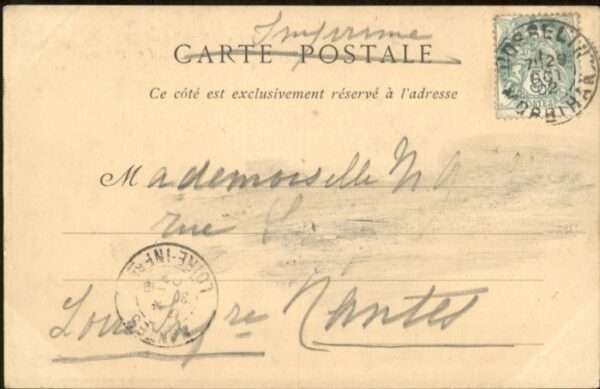 Imprimé
CARTE POSTALE
Ce côté est exclusivement réservé à l'adresse
JOSSELIN
MORBIHAN
Mademoiselle
rue
LOIRE-INFRE
Nantes
Loire Infre